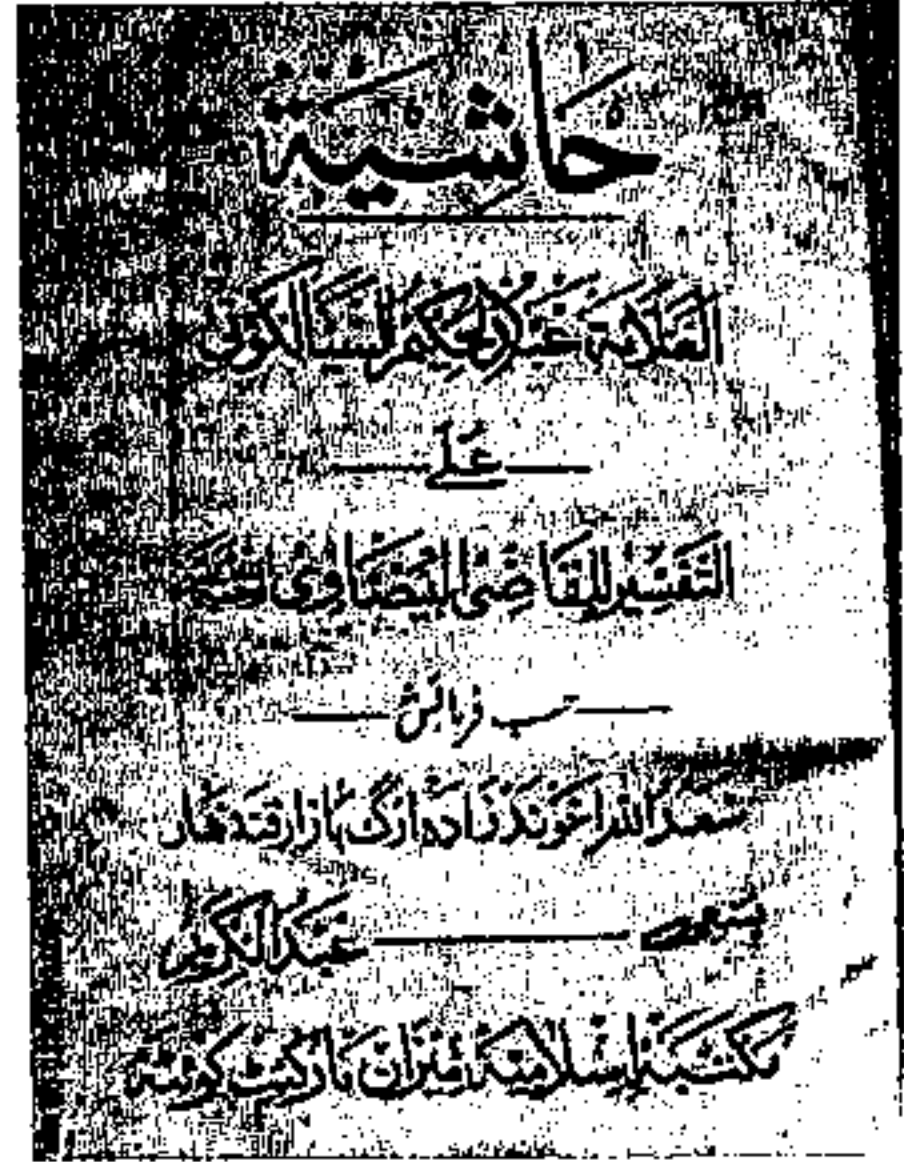 حَاشِيَة
العلامة عبدالحكيم السيالكوتي
عَلٰى
التفسير للقاضى البيضاوى
حسب فرمائش
سعد الله اخوندزاده ارگ بازار قندهار
عبدالكريم
مكتبة اسلامية ميزان ماركيث كوئته